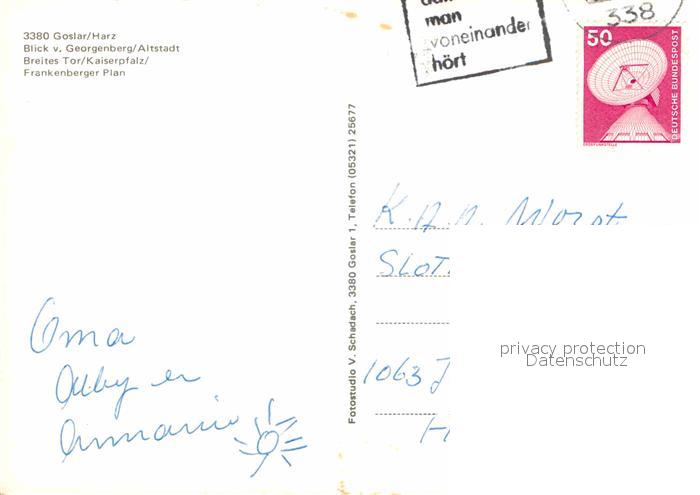 3380 Goslar/Harz
Blick v. Georgenberg/Altstadt
Breites Tor/Kaiserpfalz/
Frankenberger Plan
man
voneinander
hört
338
50
DEUTSCHE BUNDESPOST
ERDEFUNKSTELLE
Fotostudio V. Schadach, 3380 Goslar 1, Telefon (05321) 25677
SLOT
1063 J
H
privacy protection
Datenschutz
Oma
en